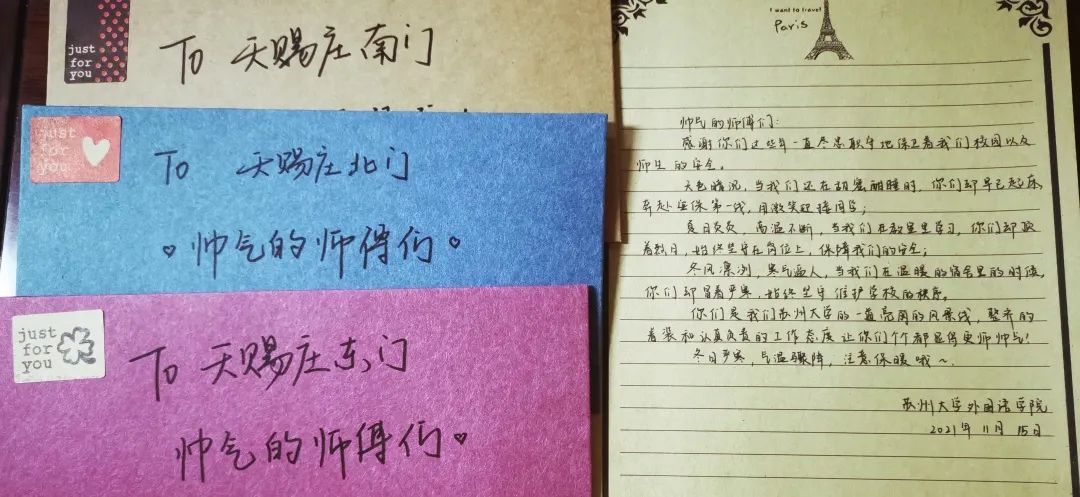 just
for
you
To 天赐庄南门
just
for
you
To 天赐庄北门
帅气的师傅们
just
for
you
To 天赐庄东门
帅气的师傅们
I want to travel
Paris
帅气的师傅们:
感谢你们这些年一直尽忠职守地保卫着我们校园以及
师生的安全。
天色暗沉,当我们还在甜蜜酣睡时,你们却早已起床,
奔赴安保第一线,用微笑迎接同学;
夏日炎炎,高温不断,当我们在教室里学习,你们却顶
着烈日,始终坚守在岗位上,保障我们的安全;
冬风凛冽,寒气逼人,当我们在温暖的宿舍里的时候,
你们却冒着严寒,始终坚守维护学校的秩序。
你们是我们苏州大学的一道亮丽的风景线,整齐的
着装和认真负责的工作态度让你们个个都显得更帅帅气!
冬日严寒,气温骤降,注意保暖哦~
苏州大学外国语学院
2021年11月15日